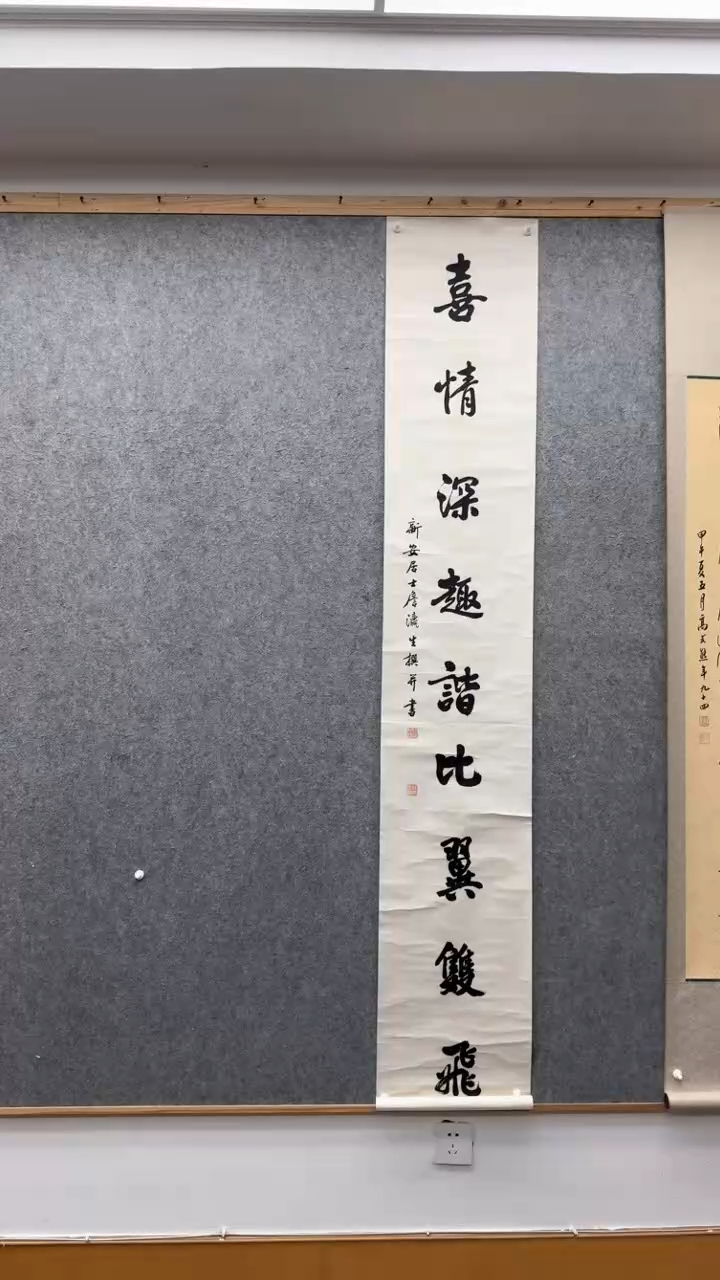 喜情深趣諧比翼雙飛
新安居士詹濤生撰并書
甲午夏五月高式熊年九十四